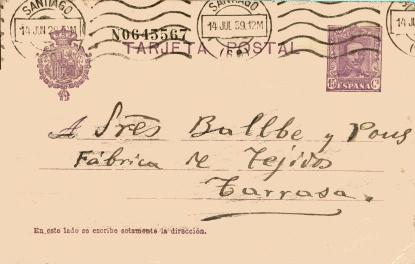 SANTIAGO SANTIAGO
14 JUN 29.12M 14 JUN 29.12M 14 JU
N0643567
TARJETA POSTAL
ESPAÑA
A Sres Ballbe y Pous
Fábrica de Tejidos
Tarrasa.
En este lado se escribe solamente la dirección.